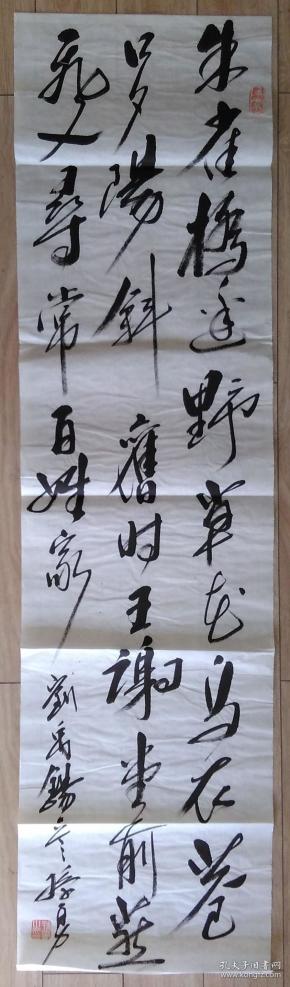 朱雀橋边野草花乌衣巷
口夕陽斜舊时王謝堂前燕
飛入尋常百姓家
劉禹錫
孔夫子旧书网